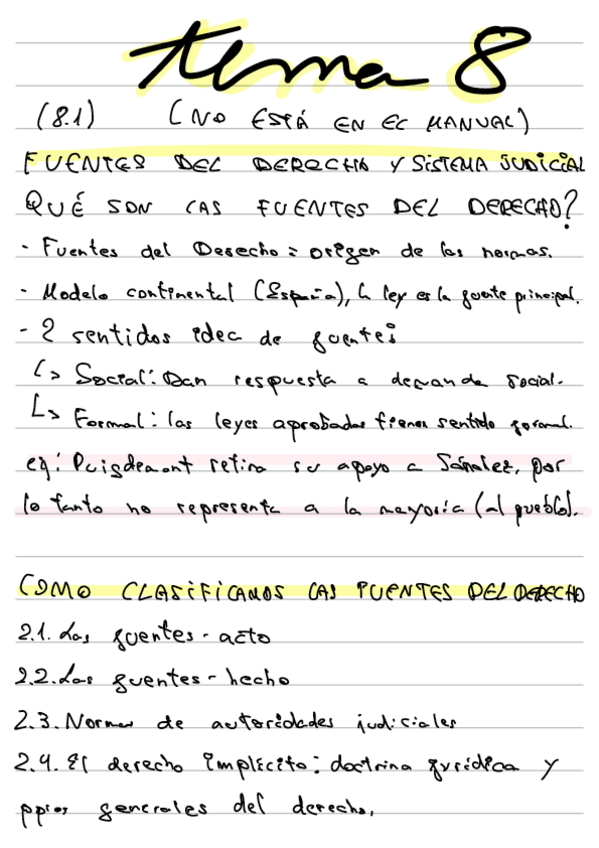 tema 8
(8.1) (NO ESTÁ EN EL MANUAL)
FUENTES DEL DERECHO Y SISTEMA JUDICIAL
QUÉ SON LAS FUENTES DEL DERECHO?
- Fuentes del Derecho = origen de las normas.
- Modelo continental (España), la ley es la fuente principal.
- 2 sentidos idea de fuente:
↳ Social: Dan respuesta a demanda social.
↳ Formal: las leyes aprobadas tienen sentido formal.
eg: Puigdemont retira su apoyo a Sánchez, por
lo tanto no representa a la mayoría (al pueblo).
COMO CLASIFICAMOS LAS FUENTES DEL DERECHO
2.1. Las fuentes - acto
2.2. Las fuentes - hecho
2.3. Normas de autoridades judiciales
2.4. El derecho implícito: doctrina jurídica y
ppios generales del derecho.